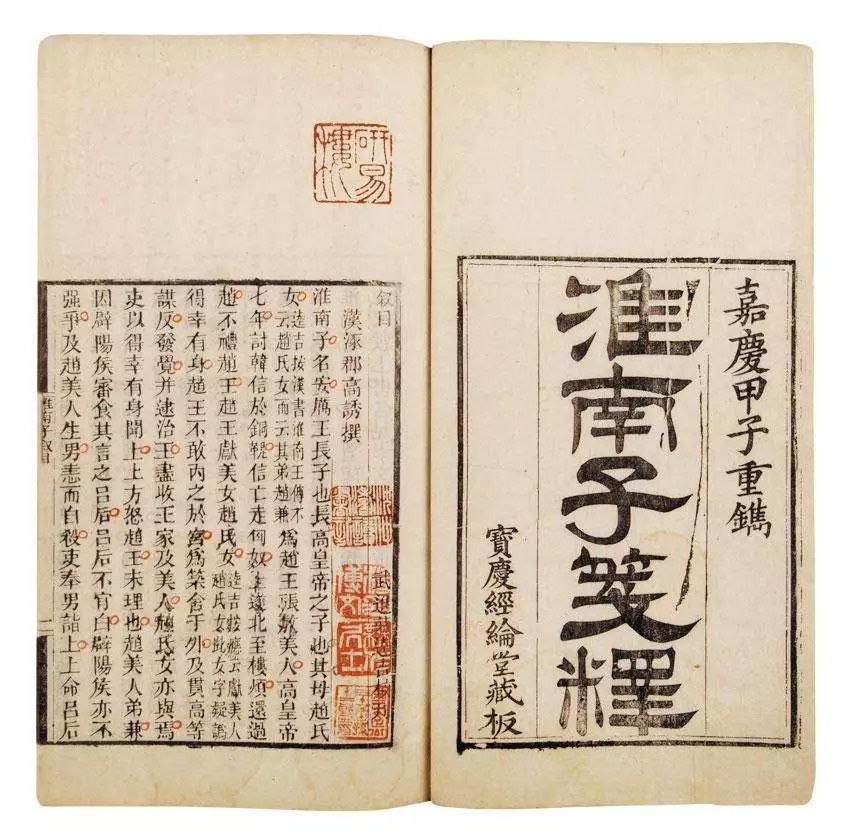 嘉慶甲子重鐫
淮南子箋釋
寶慶經綸堂藏板
研易樓
叙目
漢涿郡高誘撰 武進莊逵吉校刊
淮南子名安厲王長子也長高皇帝之子也其母趙氏
女逵吉按漢書淮南王傳不云趙氏女而云其弟趙兼為趙王張敖美人高皇帝
七年討韓信於銅鞮信亡走匈奴上遂北至樓煩還過
趙不禮趙王趙王獻美女趙氏女逵吉按應云獻美人趙氏女此女字疑譌
得幸有身趙王不敢內之於宮為築舍于外及貫高等
謀反發覺并逮治王盡收王家及美人趙氏女亦與焉
吏以得幸有身聞上上方怒趙王未理也趙美人弟兼
因辟陽侯審食其言之吕后吕后不肯白辟陽侯亦不
強爭及趙美人生男恚而自殺吏奉男詣上上命吕后
淮南子叙目